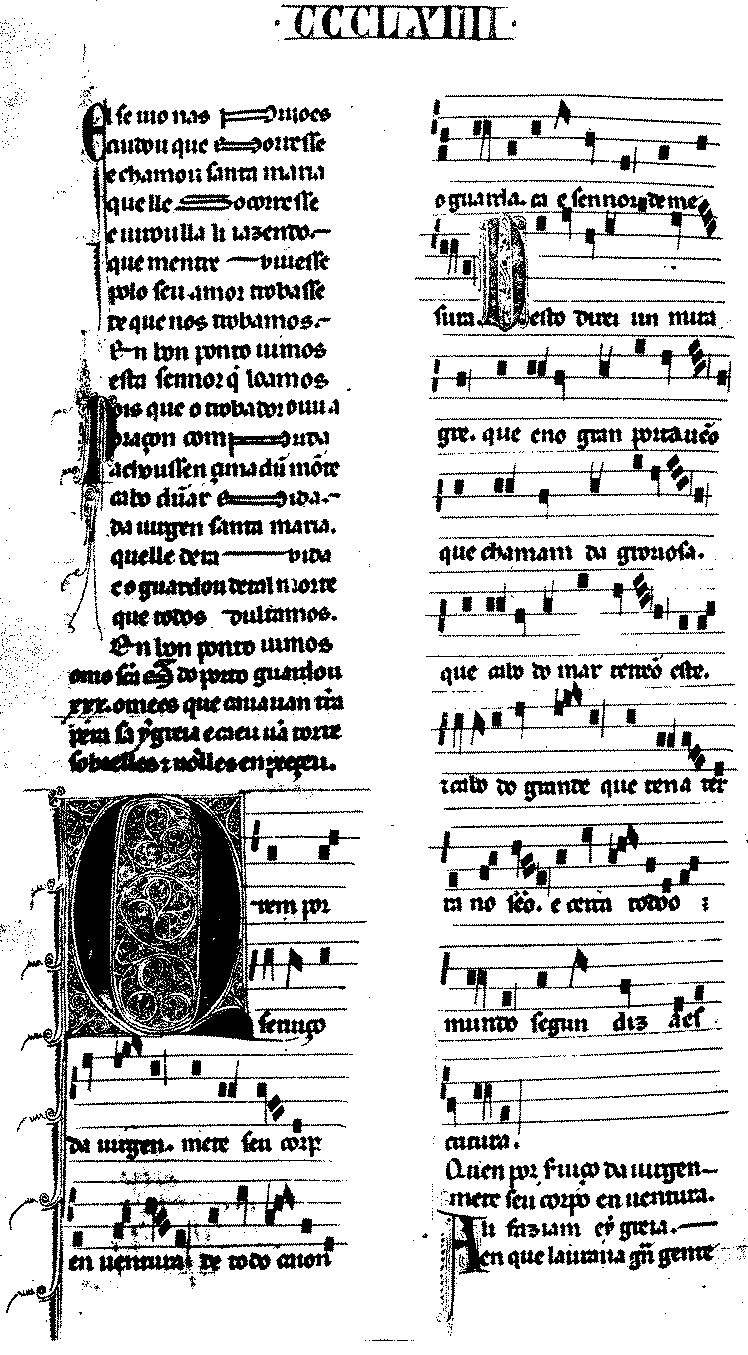 CCCLXIIII
El se uio nas p rijoes
cuidou que morresse
e chamou santa maria
que lle ocorresse
e uiroulla li iazendo.
que mentre uiuesse
polo seu amor trobasse
de que nos trobamos.
En bon ponto uimos
esta sennor q̃ loamos
Pois que o trobador ouu a
oraçon com rida
achoussen çima dũ mõte
alo dũ ar ida.
da uirgen santa maria.
quelle dera uida
e o guardou de tal morte
que todos dultamos.
En bon ponto uimos
do porto guardou
xxx. omees que cauauan
sa ygreia e caeu ũa torre
sobrelles z nõlles en peçeu.
Quem por
seruiço
da uirgen. mete seu corp
en uentura de todo cajon
o guarda. ca e sennor de me
sura. Desto direi un mira
gre. que eno gran porto uẽo
que chamam da groriosa.
que cabo do mar este.
z cabo do grande que rena ter
ra no sẽo. e cerca todoo z
mundo segun diz aes
critura.
Quen por seruiço da uirgen
mete seu corpo en uentura.
Ali faziam eygreia.
en que lauraua gñ gente